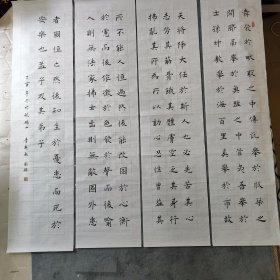 舜發於畎畝之中傅說舉於版築之
間膠鬲舉於魚鹽之中管夷吾舉於
士孫叔敖舉於海百里奚舉於市故
天將降大任於斯人也必先苦其心
志勞其筋骨餓其體膚空乏其身行
拂亂其所為所以動心忍性曾益其
所不能人恒過然後能改困於心衡
於慮而後作徵於色發於聲而後喻
入則無法家拂士出則無敵國外患
者國恒亡然後知生於憂患而死於
安樂也孟子及其弟子